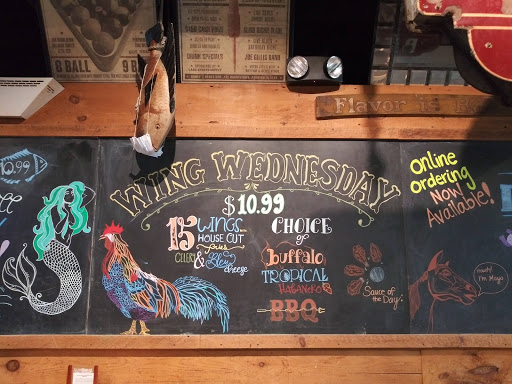 8 BALL
9 B
JOE BILLS BAND
Flavor is
10.99
WING WEDNESDAY
$10.99
15 WINGS
HOUSE CUT
fries
CELERY & Bleu
cheese
CHOICE
of
buffalo
TROPICAL
HABANERO
BBQ
Sauce of
the Day
Online
Ordering
Now
Available!
I'm Mayo